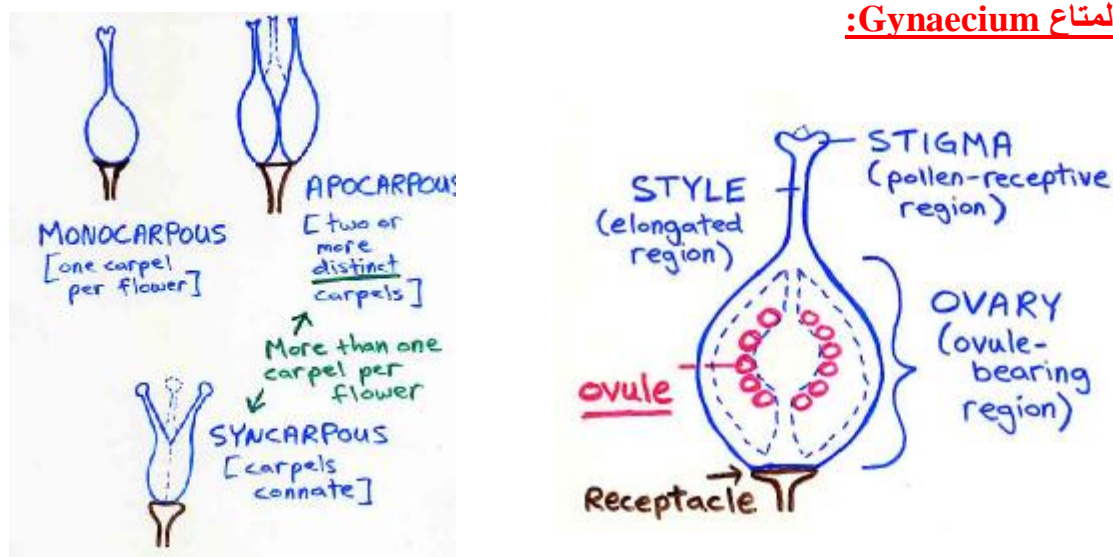 لمتاع Gynaecium:
MONOCARPOUS
[one carpel
per flower]
APOCARPOUS
[two or
more
distinct
carpels]
More than one
carpel per
flower
SYNCARPOUS
[carpels
connate]
STIGMA
(pollen-receptive
region)
STYLE
(elongated
region)
OVARY
(ovule-
bearing
region)
ovule
Receptacle